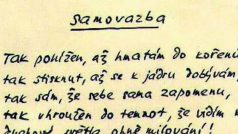 Samovazba
Tak pohlížen, až hmatám do kořenů
tak stisknut, až se k jádru dobývám,
tak sám, že sebe sama zapomenu,
tak vhroužen do temnot, že vidím
duchové světla ohně milování!